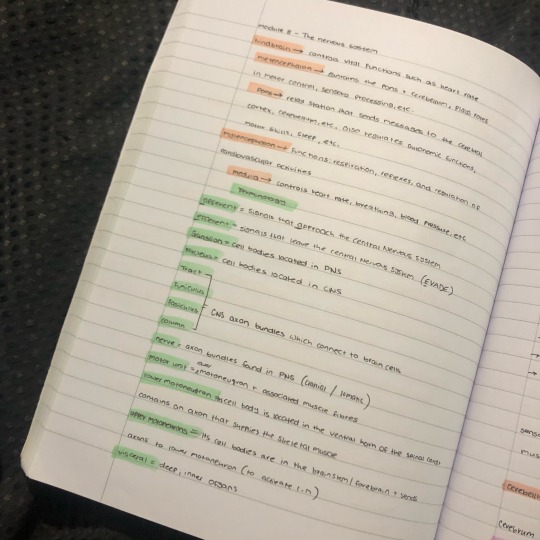 module 8 - The nervous system
hindbrain → controls vital functions such as heart rate
metencephalon → contains the pons + cerebellum, plays roles
in motor control, sensory processing, etc.
Pons → relay station that sends messages to the cerebral
cortex, cerebellum, etc. Also regulates autonomic functions,
motor skills, sleep, etc.
myelencephalon → functions: respiration, reflexes, and regulation of
cardiovascular activities
medulla → controls heart rate, breathing, blood pressure, etc
Terminology
afferent = signals that approach the central nervous system
efferent = signals that leave the central nervous system (EVADE)
ganglion = cell bodies located in PNS
nucleus = cell bodies located in CNS
tract
funiculus
fasciculus
CNS axon bundles which connect to brain cells
column
nerve = axon bundles found in PNS (cranial / somatic)
motor unit = motoneuron + associated muscle fibres
lower motoneuron = cell body is located in the ventral horn of the spinal cord,
contains an axon that supplies the skeletal muscle
upper motoneurons = its cell bodies are in the brainstem / forebrain + sends
axons to lower motoneuron (to activate l.n)
visceral = deep, inner organs
senso
mus
cerebell
cerebrum